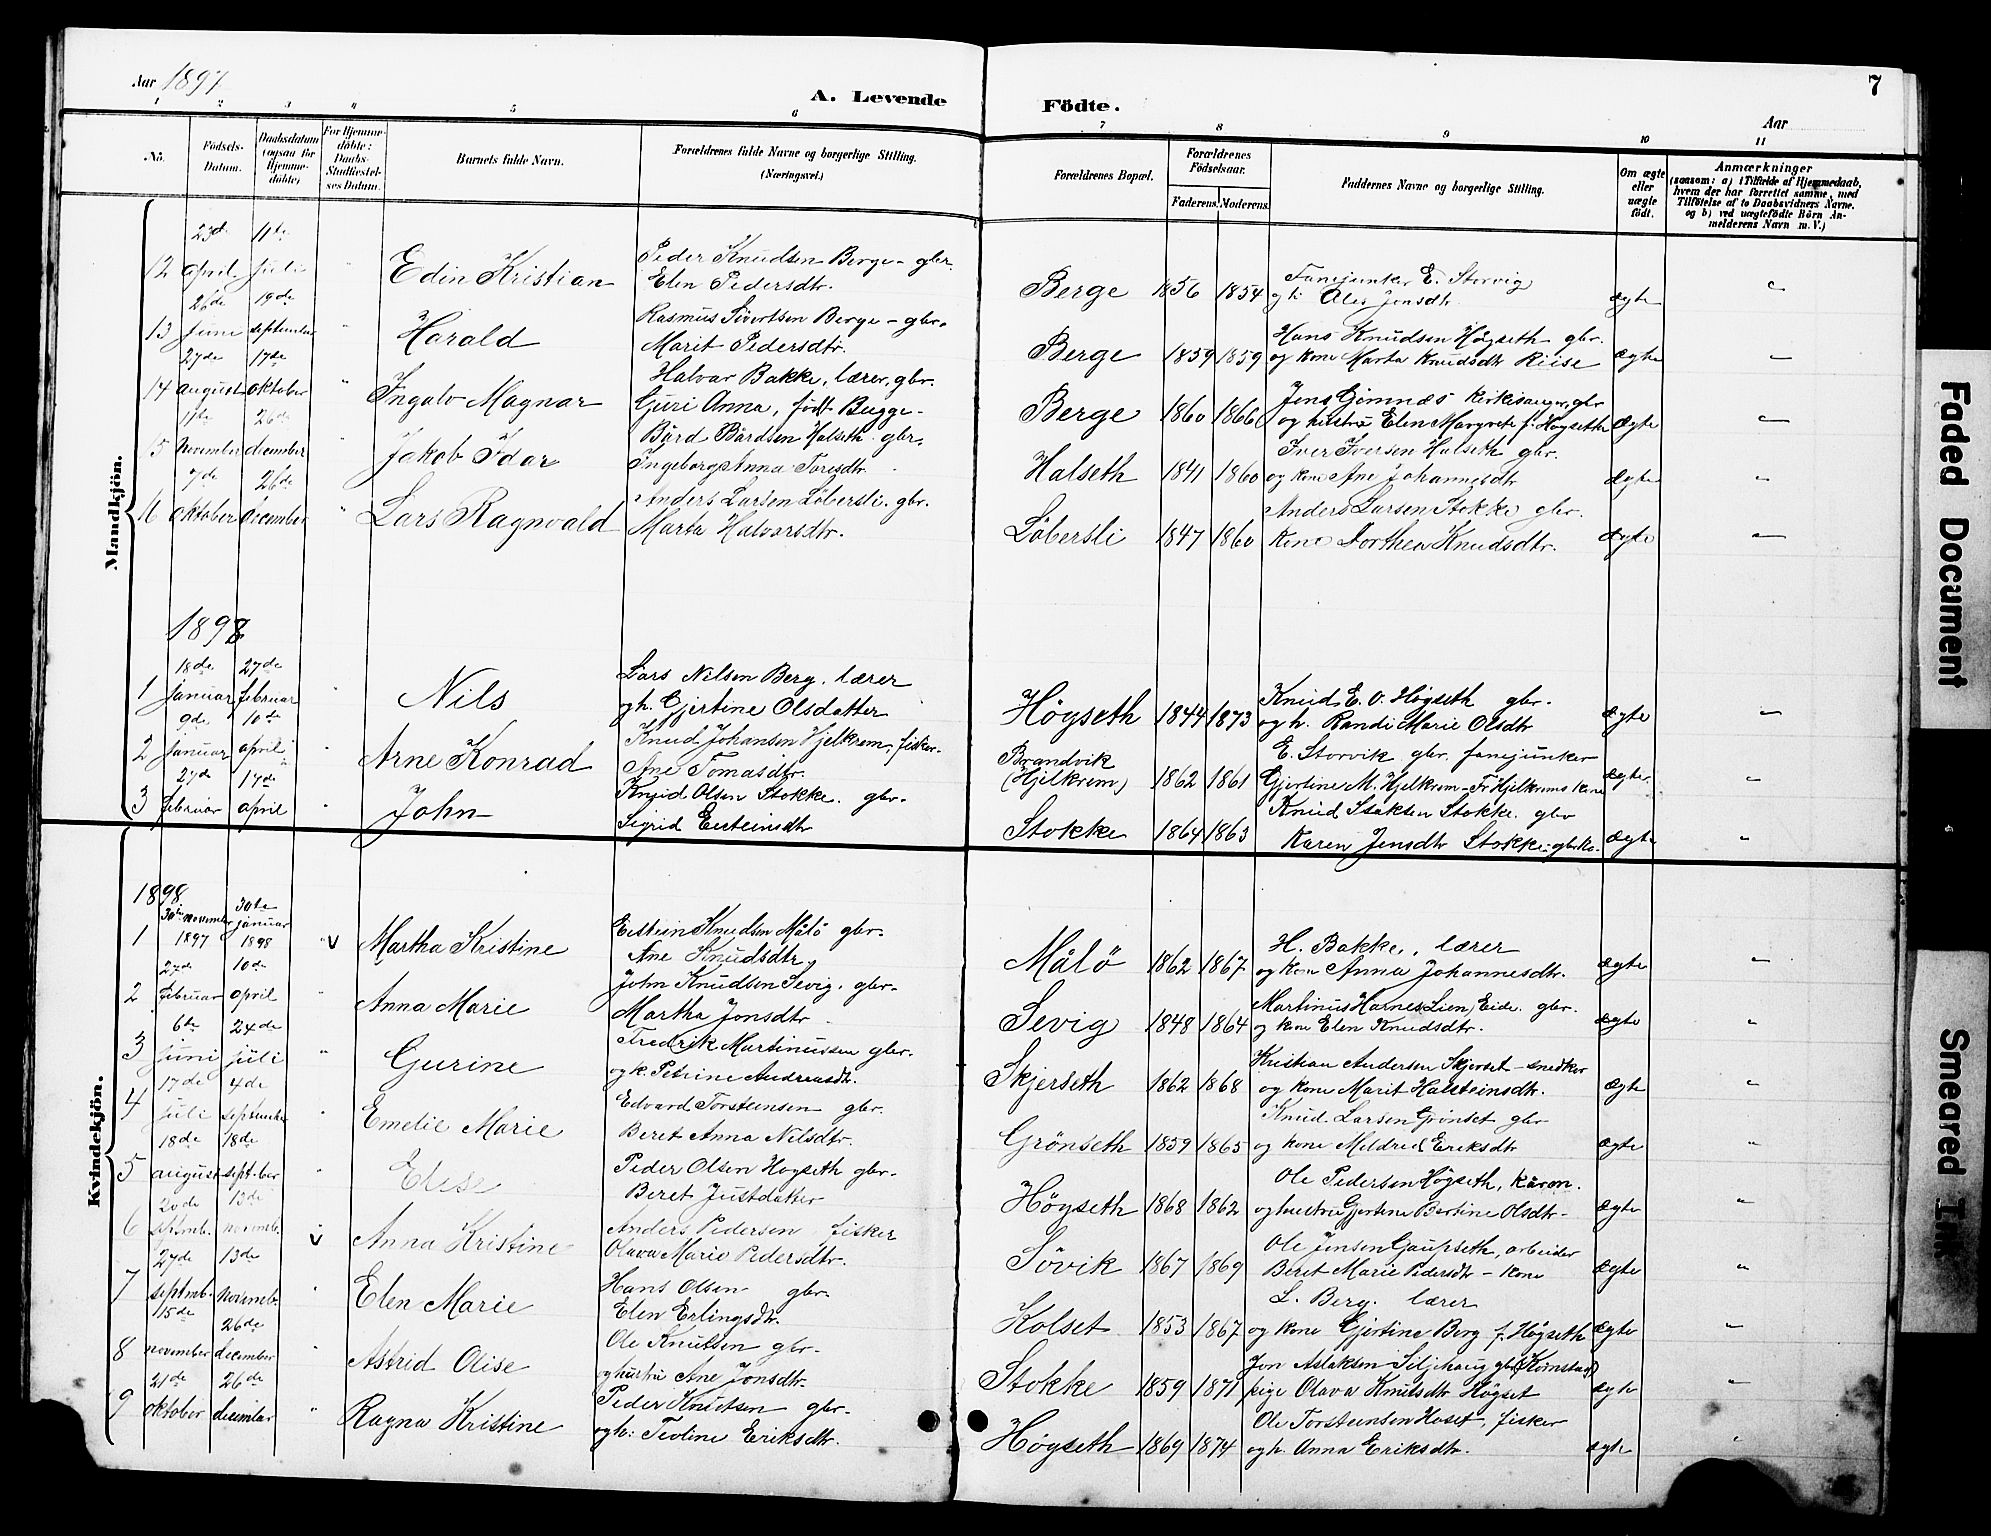 Aar 1897
A. Levende Födte.
7
Aar
1 2 3 4 5 6 7 8 9 10 11
No.
Födsels-Datum.
Daabsdatum (ogsaa for Hjemme-döbte)
For Hjemme-döbte: Daabs-Stadfæstel-ses Datum.
Barnets fulde Navn.
Forældrenes fulde Navne og borgerlige Stilling. (Næringsvei.)
Forældrenes Bopæl.
Forældrenes Födselsaar.
Faderens. Moderens.
Faddernes Navne og borgerlige Stilling.
Om ægte eller uægte födt.
Anmærkninger (saasom: a) i Tilfælde af Hjemmedaab, hvem der har forrettet samme, med Tilföielse af to Daabsvidners Navne. og b) ved uægtefödte Börn An-melderens Navn m. V.)
Mandkjön.
12 23de april 11te juli " Edin Kristian Peder Knudsen Berge - gbr. Elen Pedersdtr. Berge 1856 1854 Fanejunker E. Storvig gh. Ales Jonsdtr. ægte "
13 26de June 19de september " Harald Rasmus Sivertsen Berge - gbr. Marit Pedersdtr. Berge 1859 1859 Hans Knudsen Høgseth gbr. og kone Marta Knudsdtr Riise ægte "
14 27de august 17de oktober " Ingalv Magnar Halvar Bakke, lærer, gbr. Guri Anna, født Bugge - Berge 1860 1866 Jens Gimnæs kirkesanger, gbr og hustru Elen Margrete f. Høgseth ægte "
5 11te november 26de december " Jakob Idar Bård Bårdsen Halseth gbr. Ingeborg Anna Toresdtr. Halseth 1841 1860 Iver Iversen Halseth gbr. og kone Ane Johannesdtr ægte "
16 7de oktober 26de december " Lars Ragnvald Anders Larsen Löbersli. gbr. Marta Halvarsdtr. Löbersli 1847 1860 Anders Larsen Stokke gbr. kone Dorthea Knudsdtr. ægte "
1898
1 18de januar 27de februar " Nils Lars Nilsen Berg, lærer gh. Gjertine Olsdatter Högseth 1844 1873 Knud E. O. Høgseth gbr. og h. Randi Marie Olsdtr ægte "
2 9de januar 10de april " Arne Konrad Knud Johansen Hjelkrem, fisker. Ane Tomasdtr. Brandvik (Hjelkrem) 1862 1861 E. Storvik gbr. fanejunker Gjertine M. Hjelkrem - Fr Hjelkrems kone ægte "
3 27de februar 17de april " John Knud Olsen Stokke. gbr. Sigrid Eisteinsdtr Stokke 1864 1863 Knud Isaksen Stokke. gbr Karen Jensdtr Stokke - gbr ko. ægte "
Kvindekjön.
1898
1 30te november 1897 30te januar 1898 " v Martha Kristine Eistein Knudsen Målö gbr. Ane Knudsdtr. Målö 1862 1867 H. Bakke, lærer og kone Anna Johannesdtr. ægte "
2 27de februar 10de april " Anna Marie John Knudsen Sevig. gbr. Martha Jonsdtr Sevig 1848 1864 Martinus Hansen Lien, Eide. gbr. og kone Elen Knudsdtr. ægte "
3 6te juni 24de juli " Gurine Fredrik Martinussen gbr. og k. Petrine Andreasdtr. Skjerseth 1862 1868 Kristian Andersen Skjerset - snedker og kone Marit Halsteinsdtr. ægte "
4 17de juli 4de september " Emelie Marie Edvard Torsteinsen gbr. Beret Anna Nilsdtr. Grönseth 1859 1865 Knud Larsen Grönset gbr og kone Mildrid Eriksdtr ægte "
5 18de august 18de sept-ber " Elise Peder Olsen Hogseth gbr. Beret Justdater Högseth 1868 1862 Ole Pedersen Högseth, kårm. og hustru Gjertine Bertine Olsdtr. ægte "
6 20de septmb. 13de novemb. v Anna Kristine Anders Pedersen fisker Olava Marie Pedersdtr. Sövik 1867 1869 Ole Jensen Gaupseth, arbeider Beret Marie Pedersdtr - kone ægte "
7 27de septmb. 13de novemb. " Elen Marie Hans Olsen gbr. Elen Erlingsdtr. Kolset 1853 1867 L. Berg. lærer og kone Gjertine Berg f. Högseth ægte "
8 15de november 26de december " Astrid Olise Ole Knutsen gbr. og hustru Ane Jonsdtr. Stokke 1859 1871 Jon Aslaksen Siljehaug gbr (Kornstad) pige Olava Knutsdtr Högset ægte "
9 21de oktober 26de december " Ragna Kristine Peder Knutsen gbr. og h: Teoline Eriksdtr. Högseth 1869 1874 Ole Torsteinsen Hoset, fisker og h. Anna Eriksdtr. ægte "
Faded Document
Smeared Ink